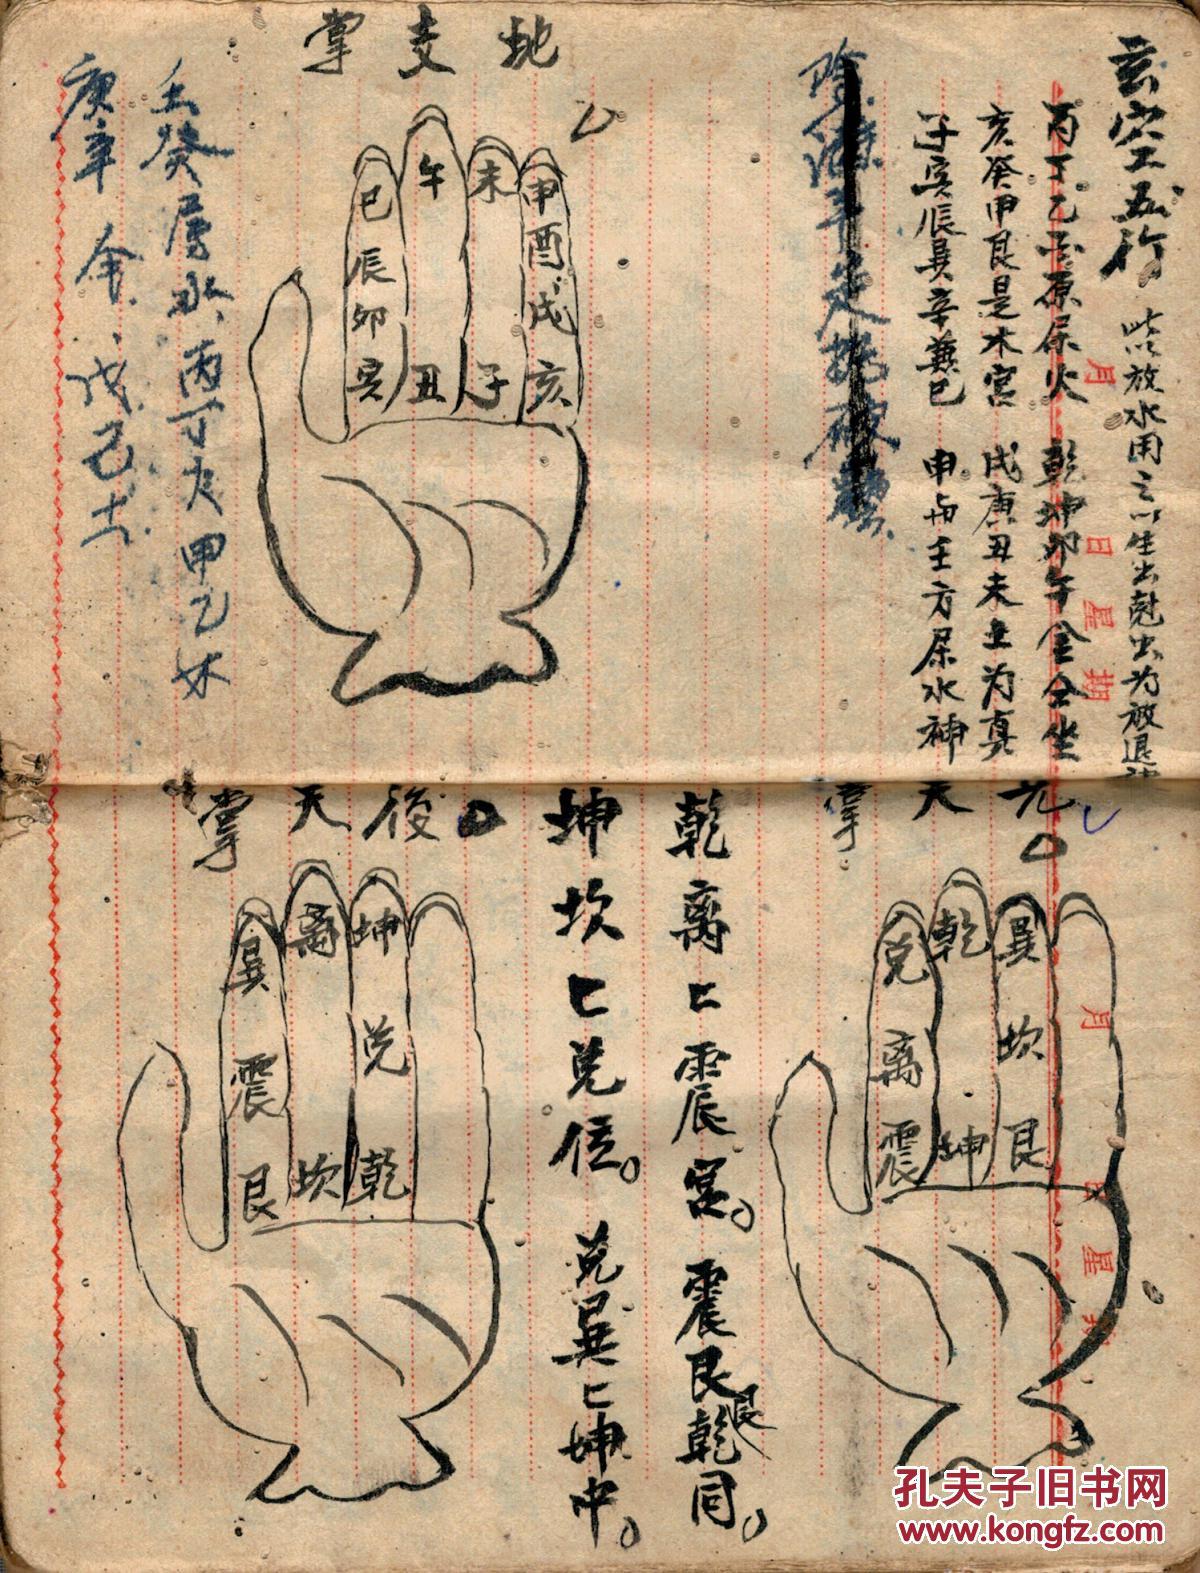 玄空五行
此放水用之以生出剋出为放退神
丙丁乙酉原属火 乾坤卯午金仝坐
亥癸甲艮是木宫 戌庚丑未土为真
子寅辰巽辛兼巳 申与壬方属水神
地支掌
巳辰卯寅
午丑
未子
申酉戌亥
壬癸属水 丙丁火 甲乙木
庚辛金 戊己土
先天掌
兑离震
乾坤
巽坎艮
乾离匕震宫。震艮匕乾同。
艮
坤坎匕兑位。兑巽匕坤中。
後天掌
巽震艮
离坎
坤兑乾
月日星期
月日星期
孔夫子旧书网
www.kongfz.com